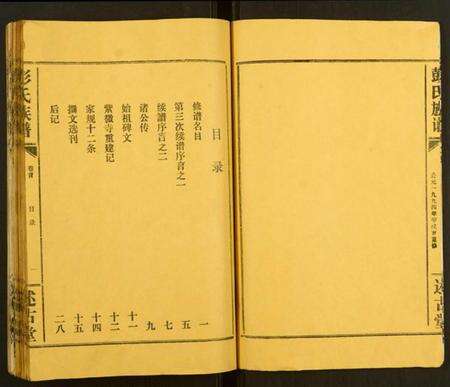 彭氏族谱
公元一九九四年甲戌重修
述古堂
目录
修谱名目 一
第三次续谱序言之一 五
续谱序言之二 七
诸公传 九
始祖碑文 十一
紫微寺重建记 十二
家规十二条 十四
撰文选刊 十五
后记 二八
彭氏族谱
卷首
目录
一
述古堂